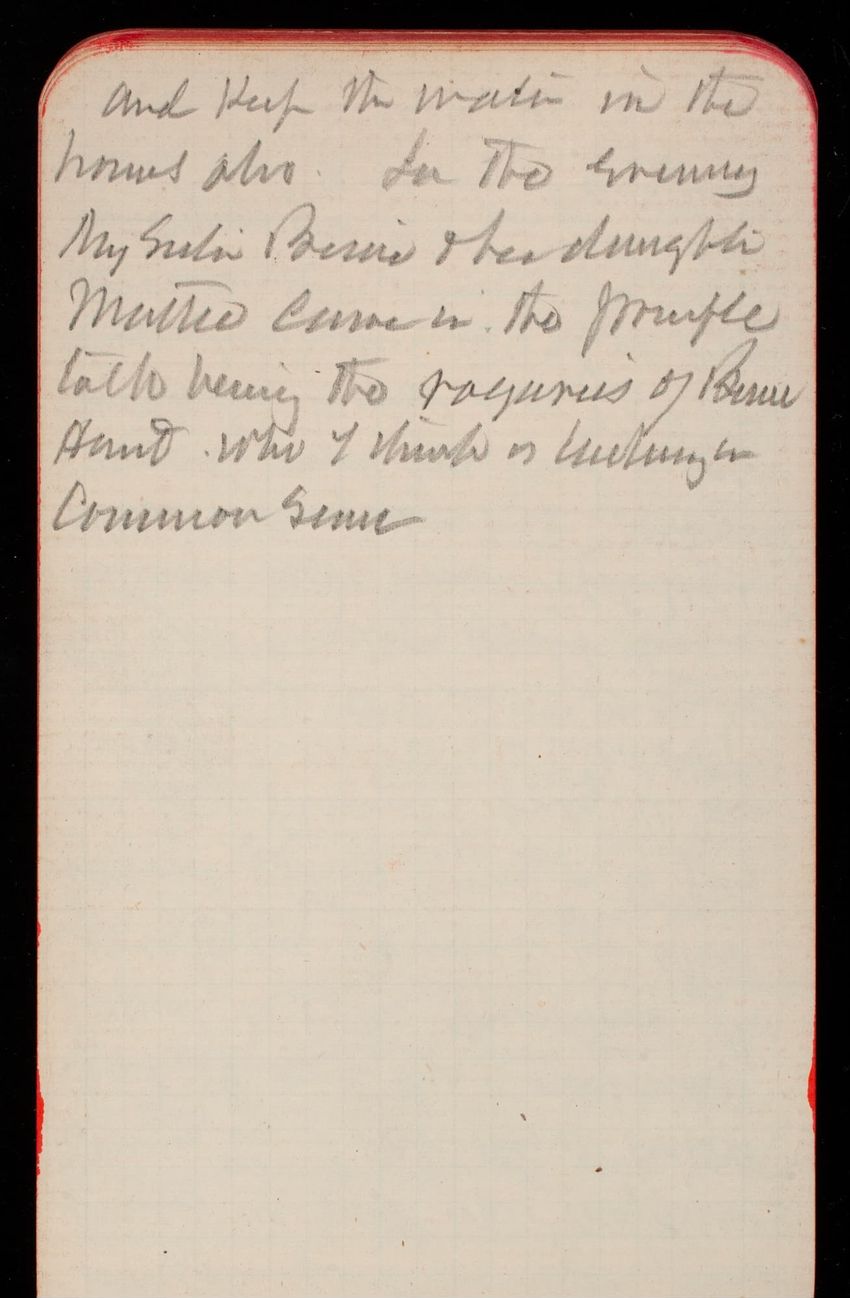 and Keep the water in the
house also. In the evening
My Sister Bessie & her daughter
Mattie Came in. the principle
talk being the vagaries of Bessie
Hunt. who I think is lacking in
Common Sense